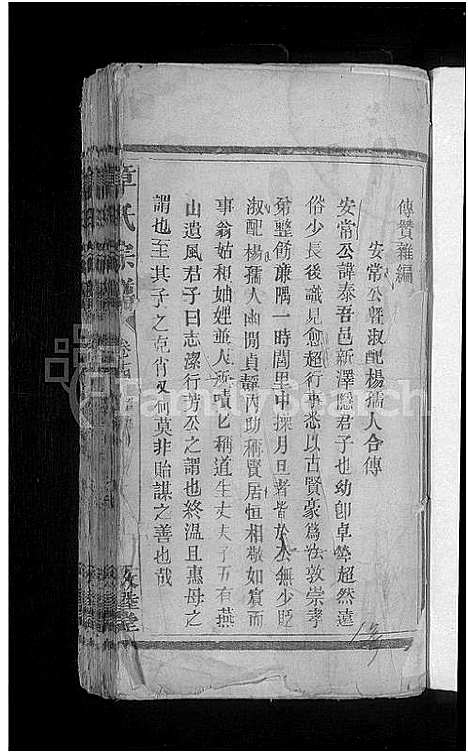 傳贊雜編
安常公暨淑配楊孺人合傳
安常公諱泰吾邑新澤隱君子也幼卽卓犖超然遠
俗少長後識見愈超行事悉以古賢豪爲法敦崇孝
弟整飭廉隅一時閭里中採月旦者皆於公無少貶
淑配楊孺人幽閒貞靜內助稱賢居恒相敬如賓而
事翁姑和妯娌並人所嘖匕稱道生丈夫子五有燕
山遺風君子曰志潔行芳公之謂也終溫且惠母之
謂也至其子之克肖又何莫非貽謀之善也哉
章氏宗譜
卷
敦睦堂
FamilySearch